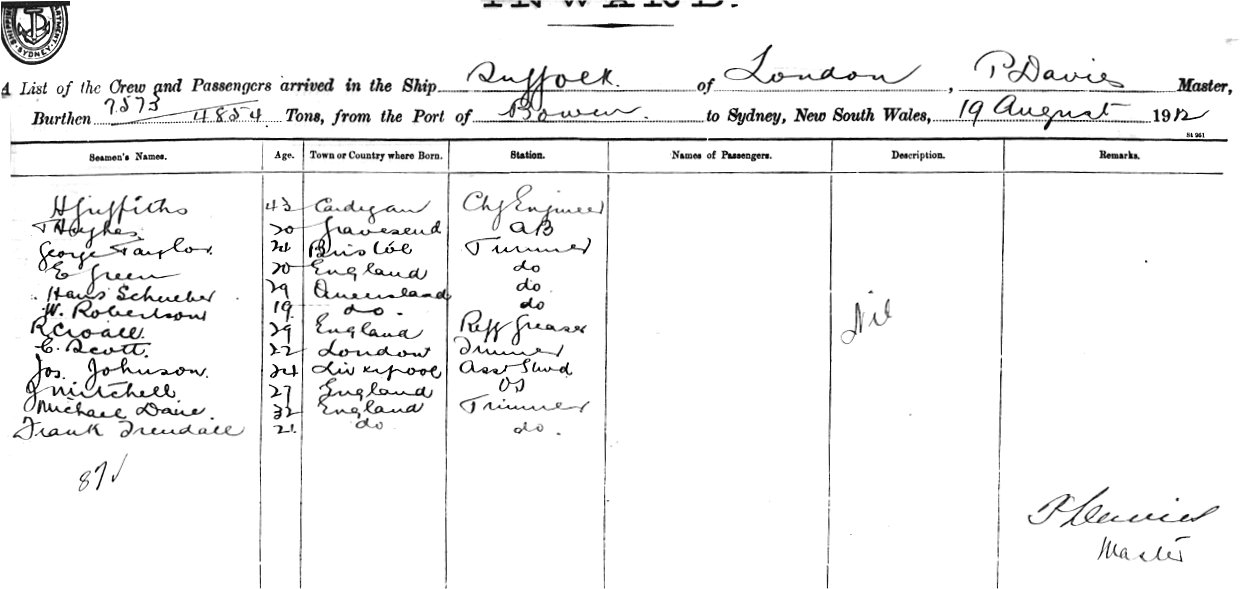 INWARD.
SHIPPING DEPARTMENT SYDNEY
A List of the Crew and Passengers arrived in the Ship Suffolk. of London, P Davies Master,
Burthen 7573 4854 Tons, from the Port of Bowen. to Sydney, New South Wales, 19 August 1912
St 961
Seamen's Names. Age. Town or Country where Born. Station. Names of Passengers. Description. Remarks.
H Griffiths 43 Cardigan Chf Engineer
T Hughes 20 Gravesend AB
George Taylor. 24 Bristol Trimmer
E Green 20 England do
Hans Schueber 29 Queensland do
W. Robertson 19 do. do
R Croall. 29 England Reff Greaser
C. Scott. 22 London Trimmer
Jos. Johnson. 24 Liverpool Asst Stwd
J Mitchell 27 England OS
Michael Daire. 32 England Trimmer
Frank Trendall 21 do do.
Nil
87
P Davies
Master